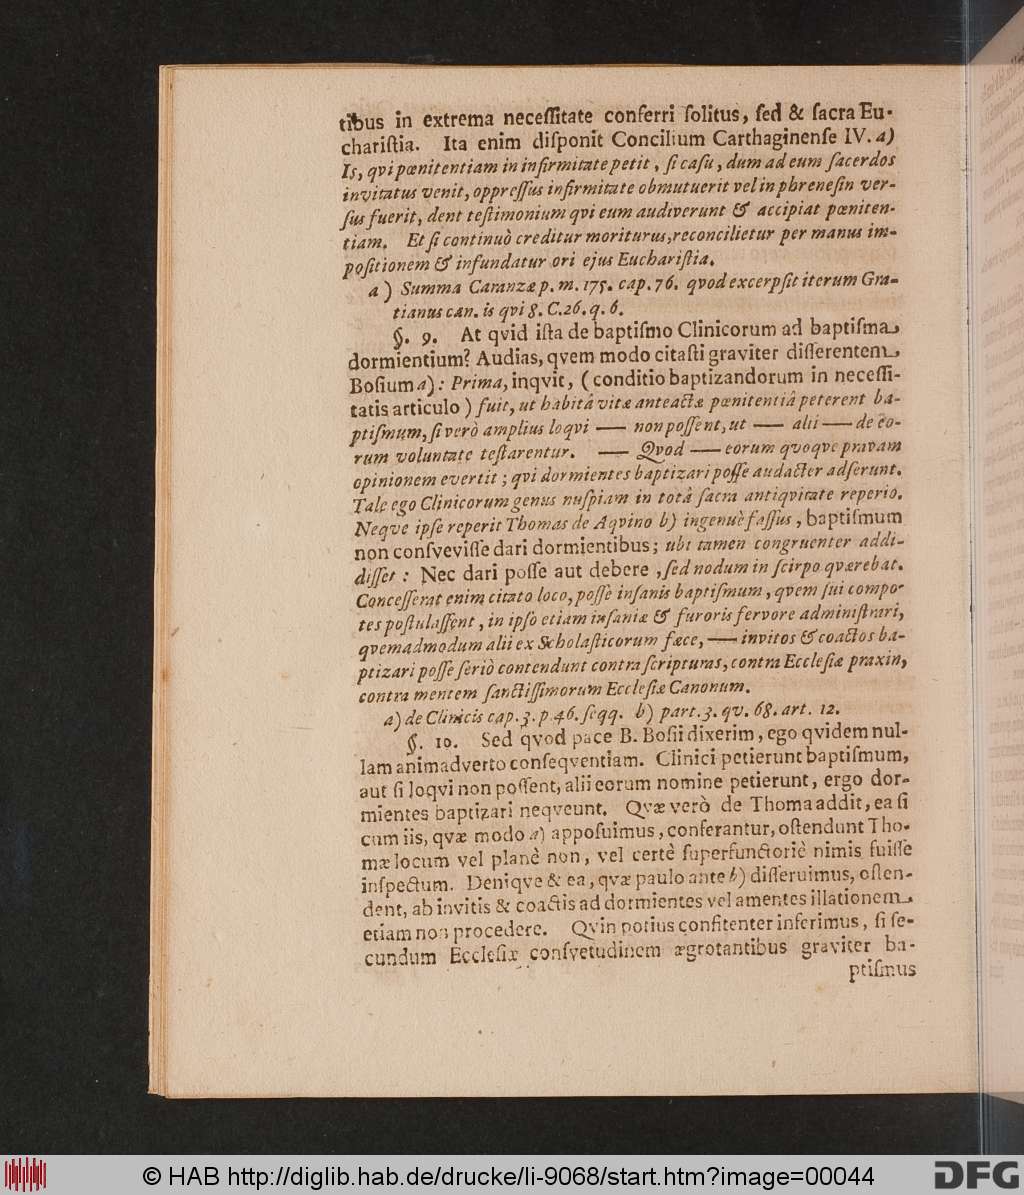 tibus in extrema neceſſitate conferri ſolitus, ſed & ſacra Eu-
chariſtia. Ita enim diſponit Concilium Carthaginenſe IV. a)
Is, qvi pœnitentiam in infirmitate petit, ſi caſu, dum ad eum ſacerdos
invitatus venit, oppreſſus infirmitate obmutuerit vel in phreneſin ver-
ſus fuerit, dent teſtimonium qvi eum audiverunt & accipiat pœniten-
tiam. Et ſi continuò creditur moriturus, reconcilietur per manus im-
poſitionem & infundatur ori ejus Euchariſtia.
a) Summa Caranzæ p. m. 175. cap. 76. qvod excerpſit iterum Gra-
tianus can. is qvi 8. C. 26. q. 6.
§. 9. At qvid iſta de baptiſmo Clinicorum ad baptiſma
dormientium? Audias, qvem modo citaſti graviter diſſerentem,
Boſium a): Prima, inqvit, (conditio baptizandorum in neceſſi-
tatis articulo) fuit, ut habitâ vitæ anteactæ pœnitentiâ peterent ba-
ptiſmum, ſi verò amplius loqvi — non poſſent, ut — alii — de eo-
rum voluntate teſtarentur. — Qvod — eorum quoqve pravam
opinionem evertit; qvi dormientes baptizari poſſe audacter adſerunt.
Tale ego Clinicorum genus nuſpiam in totâ ſacra antiqvitate reperio.
Neqve ipſe reperit Thomas de Aqvino b) ingenuè faſſus, baptiſmum
non conſveviſſe dari dormientibus; ubi tamen congruenter addi-
diſſet: Nec dari poſſe aut debere, ſed nodum in ſcirpo qværebat.
Conceſſerat enim citato loco, poſſe inſanis baptiſmum, qvem ſui compo-
tes poſtulaſſent, in ipſo etiam inſaniæ & furoris fervore adminiſtrari,
qvemadmodum alii ex Scholaſticorum fæce, — invitos & coactos ba-
ptizari poſſe ſeriò contendunt contra ſcripturas, contra Eccleſiæ praxin,
contra mentem ſanctiſſimorum Eccleſiæ Canonum.
a) de Clinicis cap. 3. p. 46. ſeqq. b) part. 3. qv. 68. art. 12.
§. 10. Sed qvod pace B. Boſii dixerim, ego qvidem nul-
lam animadverto conſeqventiam. Clinici petierunt baptiſmum,
aut ſi loqvi non poſſent, alii eorum nomine petierunt, ergo dor-
mientes baptizari neqveunt. Qvæ verò de Thoma addit, ea ſi
cum iis, qvæ modo a) appoſuimus, conferantur, oſtendunt Tho-
mæ locum vel planè non, vel certè ſuperfunctoriè nimis fuiſſe
inſpectum. Deniqve & ea, qvæ paulo ante b) diſſeruimus, oſten-
dent, ab invitis & coactis ad dormientes vel amentes illationem
etiam non procedere. Qvin potius confitenter inferimus, ſi ſe-
cundum Eccleſiæ conſvetudinem ægrotantibus graviter ba-
ptiſmus
© HAB http://diglib.hab.de/drucke/li-9068/start.htm?image=00044
DFG